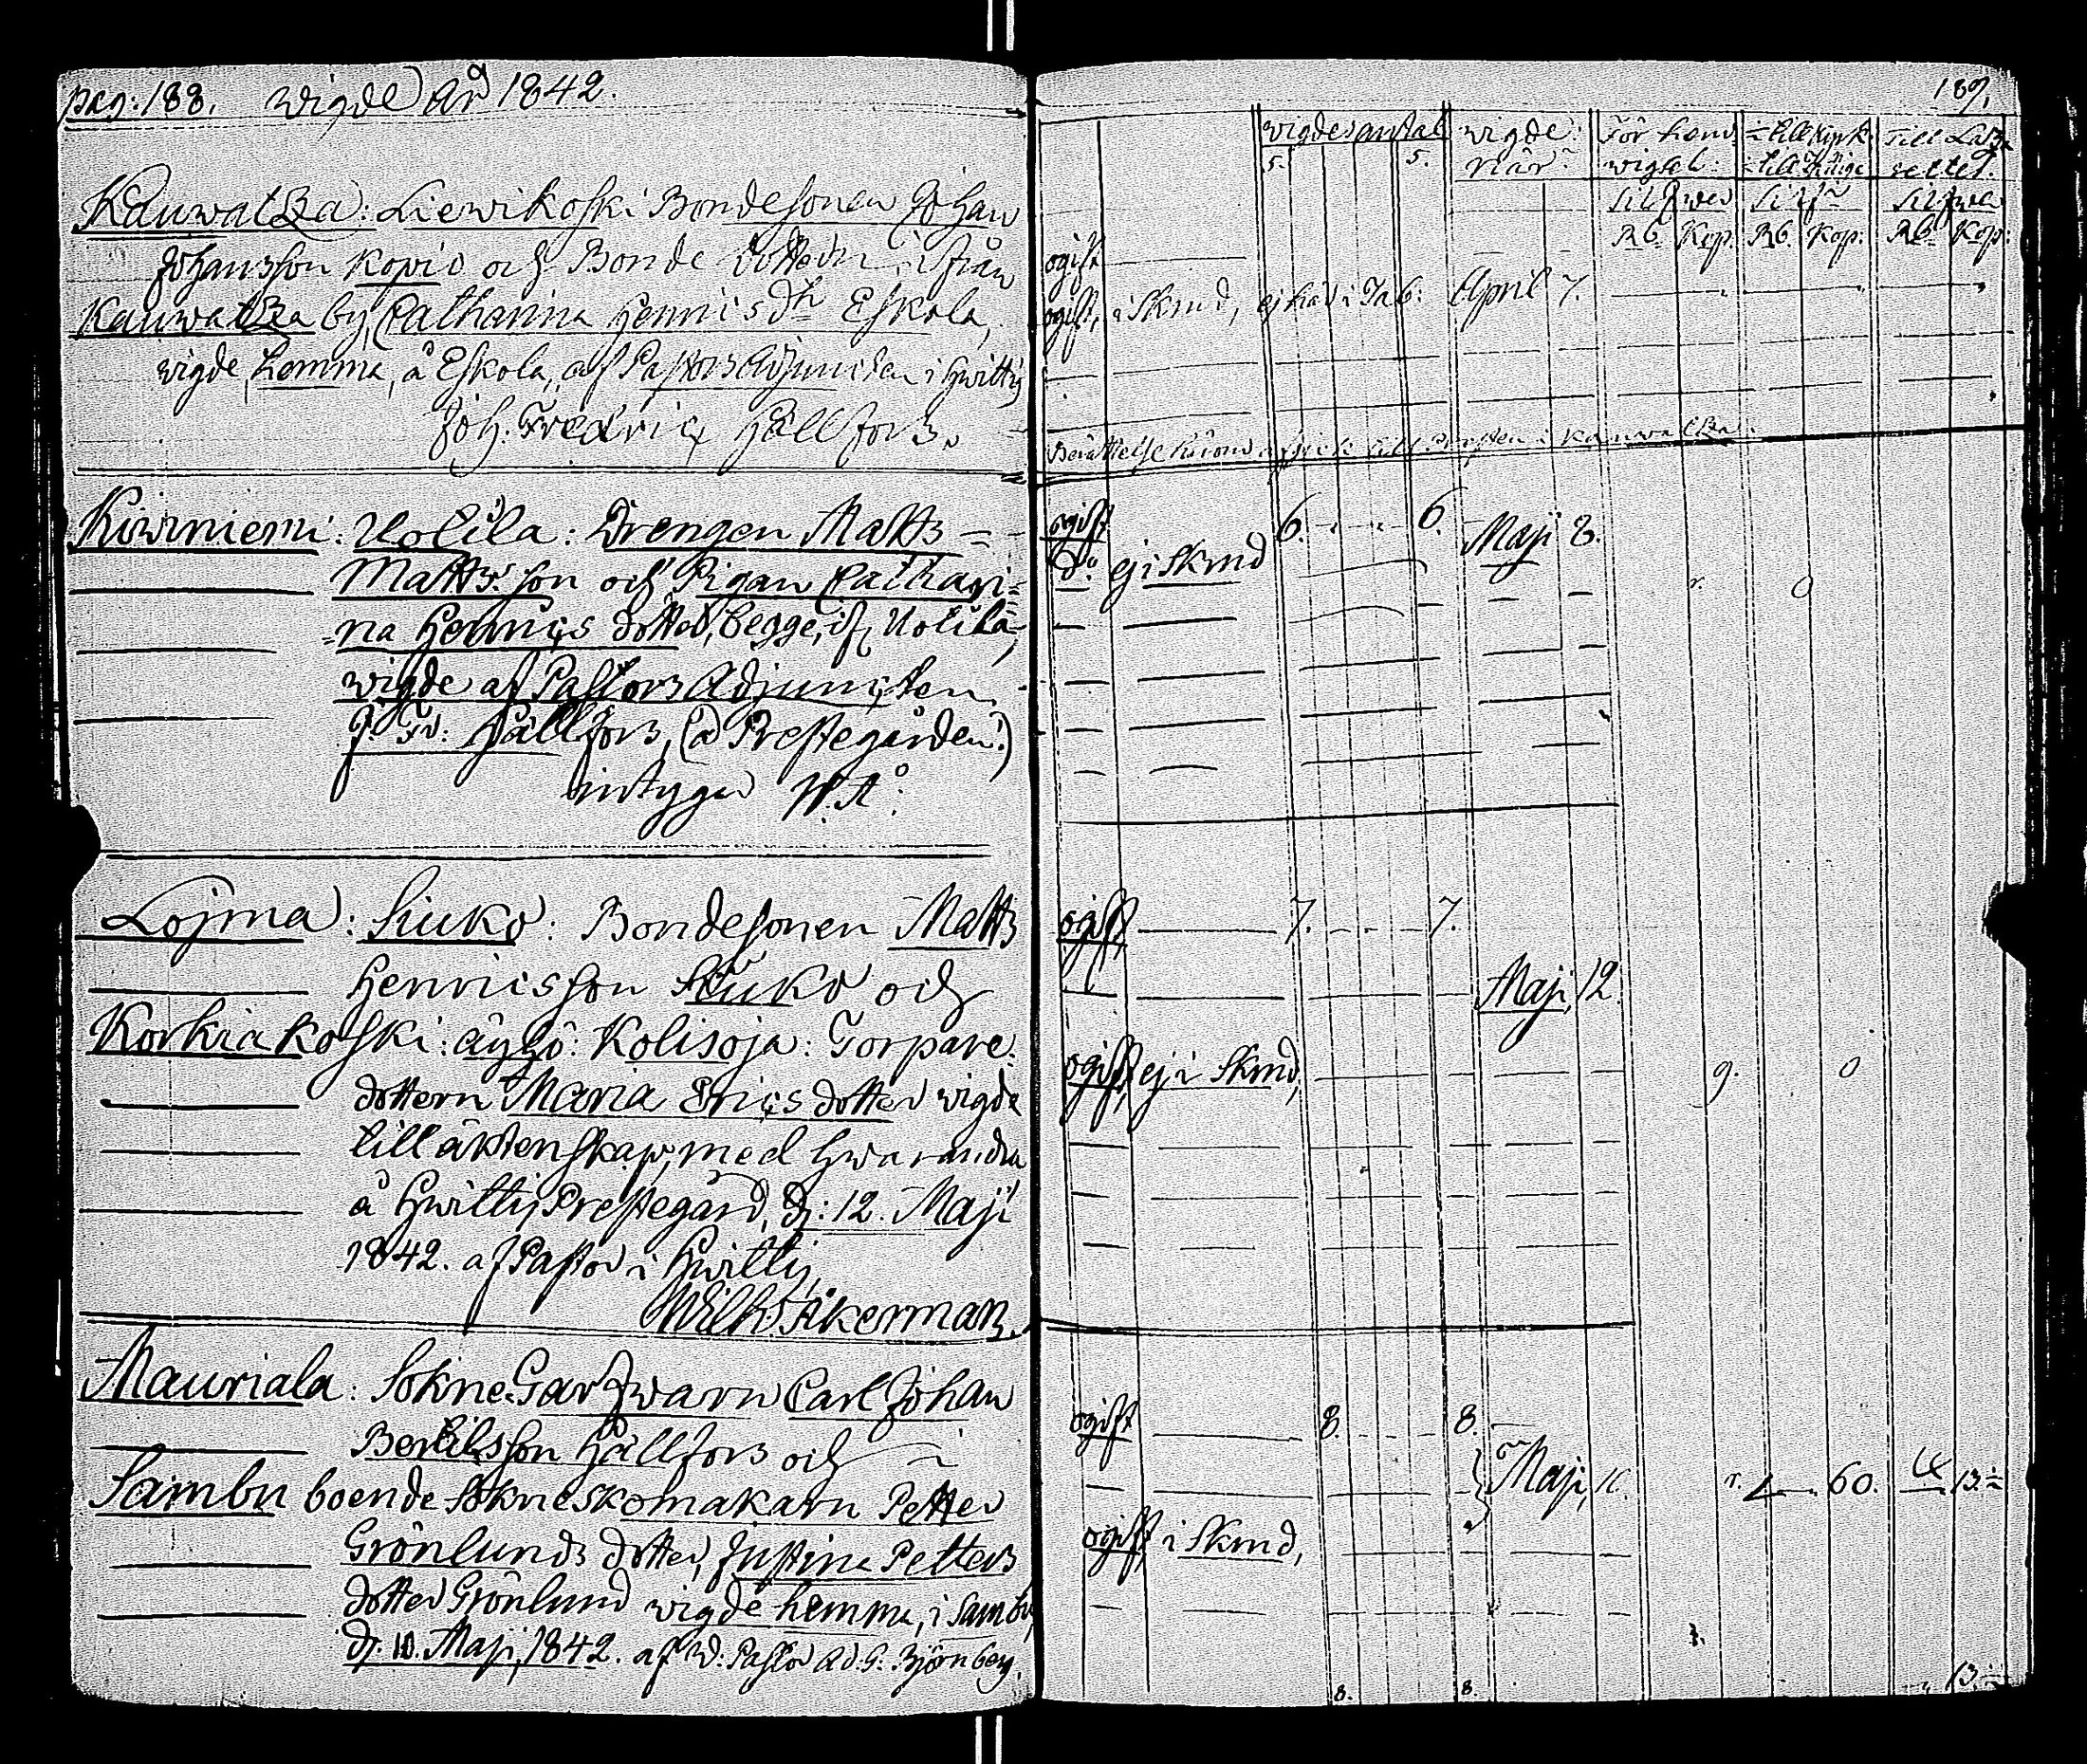 pag. 188. Wigde År 1842.
Kauwatza: Liewikoski Bondesonen Johan
Johansson Kopio och Bonde dottern ifrån
Kauwatza by, Catharina Henricsdr Eskola,
wigde, hemma, å Eskola, af Pastors Adjuncten i Hwittis
Joh. Fredric Hällfors.
Kiwiniemi: Uotila: Drengen Matts
Matts:son och Pigan Cathari=
=na Henrics dotter, begge, if. Uotila,
wigde af Pastors Adjuncten
J. Fr. Hällfors, (å Prestegården.)
intygar W. Å:
Lojma: Siuko: Bondesonen Matts
Henricsson Siuko och
Korkiakoski: äyhö: Kolisoja: Torpare
dottern Maria Erics dotter wigde
till äktenskap, med hwarandra
å Hwittis Prestegård, d: 12. Maji
1842. af Pastor i Hwittis,
Wilh. Åkerman.
Mauriala: Sokne Garfwarn Carl Johan
Bertilsson Hällfors och
Sambu boende Sokneskomakarn Petter
Grönlunds dotter, Justina Petters
dotter Grönlund wigde hemma, i Sambu
d. Maji, 1842. af W: Pastor Ad. G. Björnberg.
189.
Wigdes antal wigde För hem till Kyrk Till Laza
5. 5. när wigsel: rettet.
Silfwer Silfr Silfwer
Rb. Kop. Rb. Kop: Rb. Kop:
ogift
ogift, i Skmd, ej här i Tab. April 7.
Berättelse härom afgick till Presten i Kauwatza.
ogift 6. 6.
Do ej i Skmd Maji 8.
r. 0
ogift 7. 7.
Maji 12.
ogift, ej i Skmd, 9. 0
ogift 8. 8.
Maji, r. 60. 13.
ogift, i Skmd,
8. 8. 13.